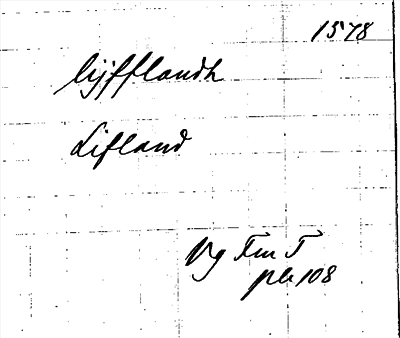 1578
lijfflandh
Lifland
Vg Fm T
pk 108